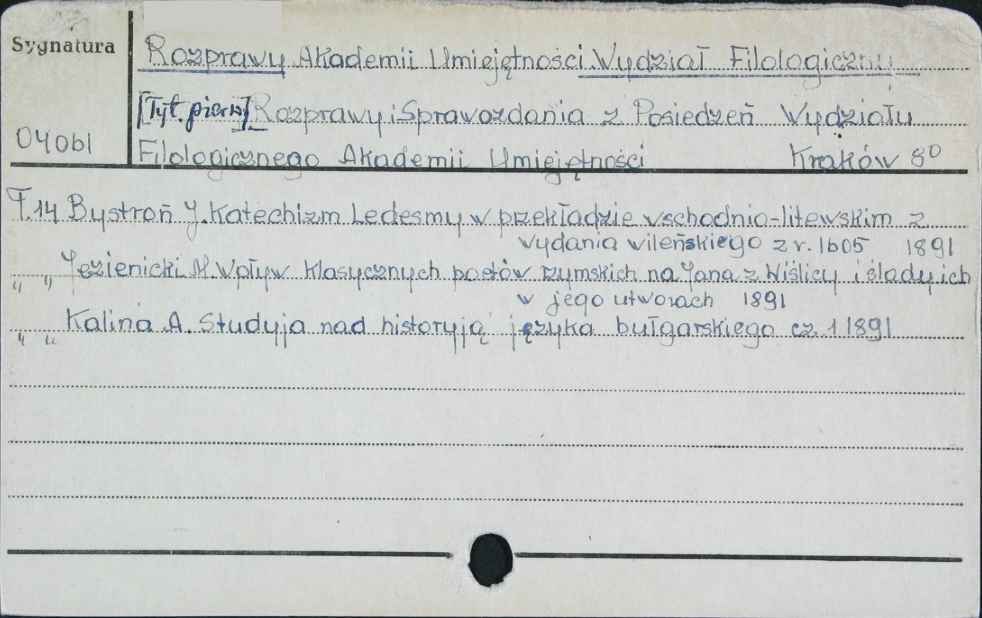 Sygnatura
Rozprawy Akademii Umiejętności Wydział Filologiczny
[Tyt. pierw] Rozprawy i Sprawozdania z Posiedzeń Wydziału
04061
Filologicznego Akademii Umiejętności Kraków 8⁰
T.14 Bystroń J. Katechizm Ledesmy w przekładzie wschodnio-litewskim z
wydania wileńskiego z r. 1605 1891
" " Jezienicki M. Wpływ klasycznych poetów rzymskich na Jana z Wiślicy i ślady ich
w jego utworach 1891
" " Kalina A. Studyja nad historyją języka bułgarskiego cz. 1 1891